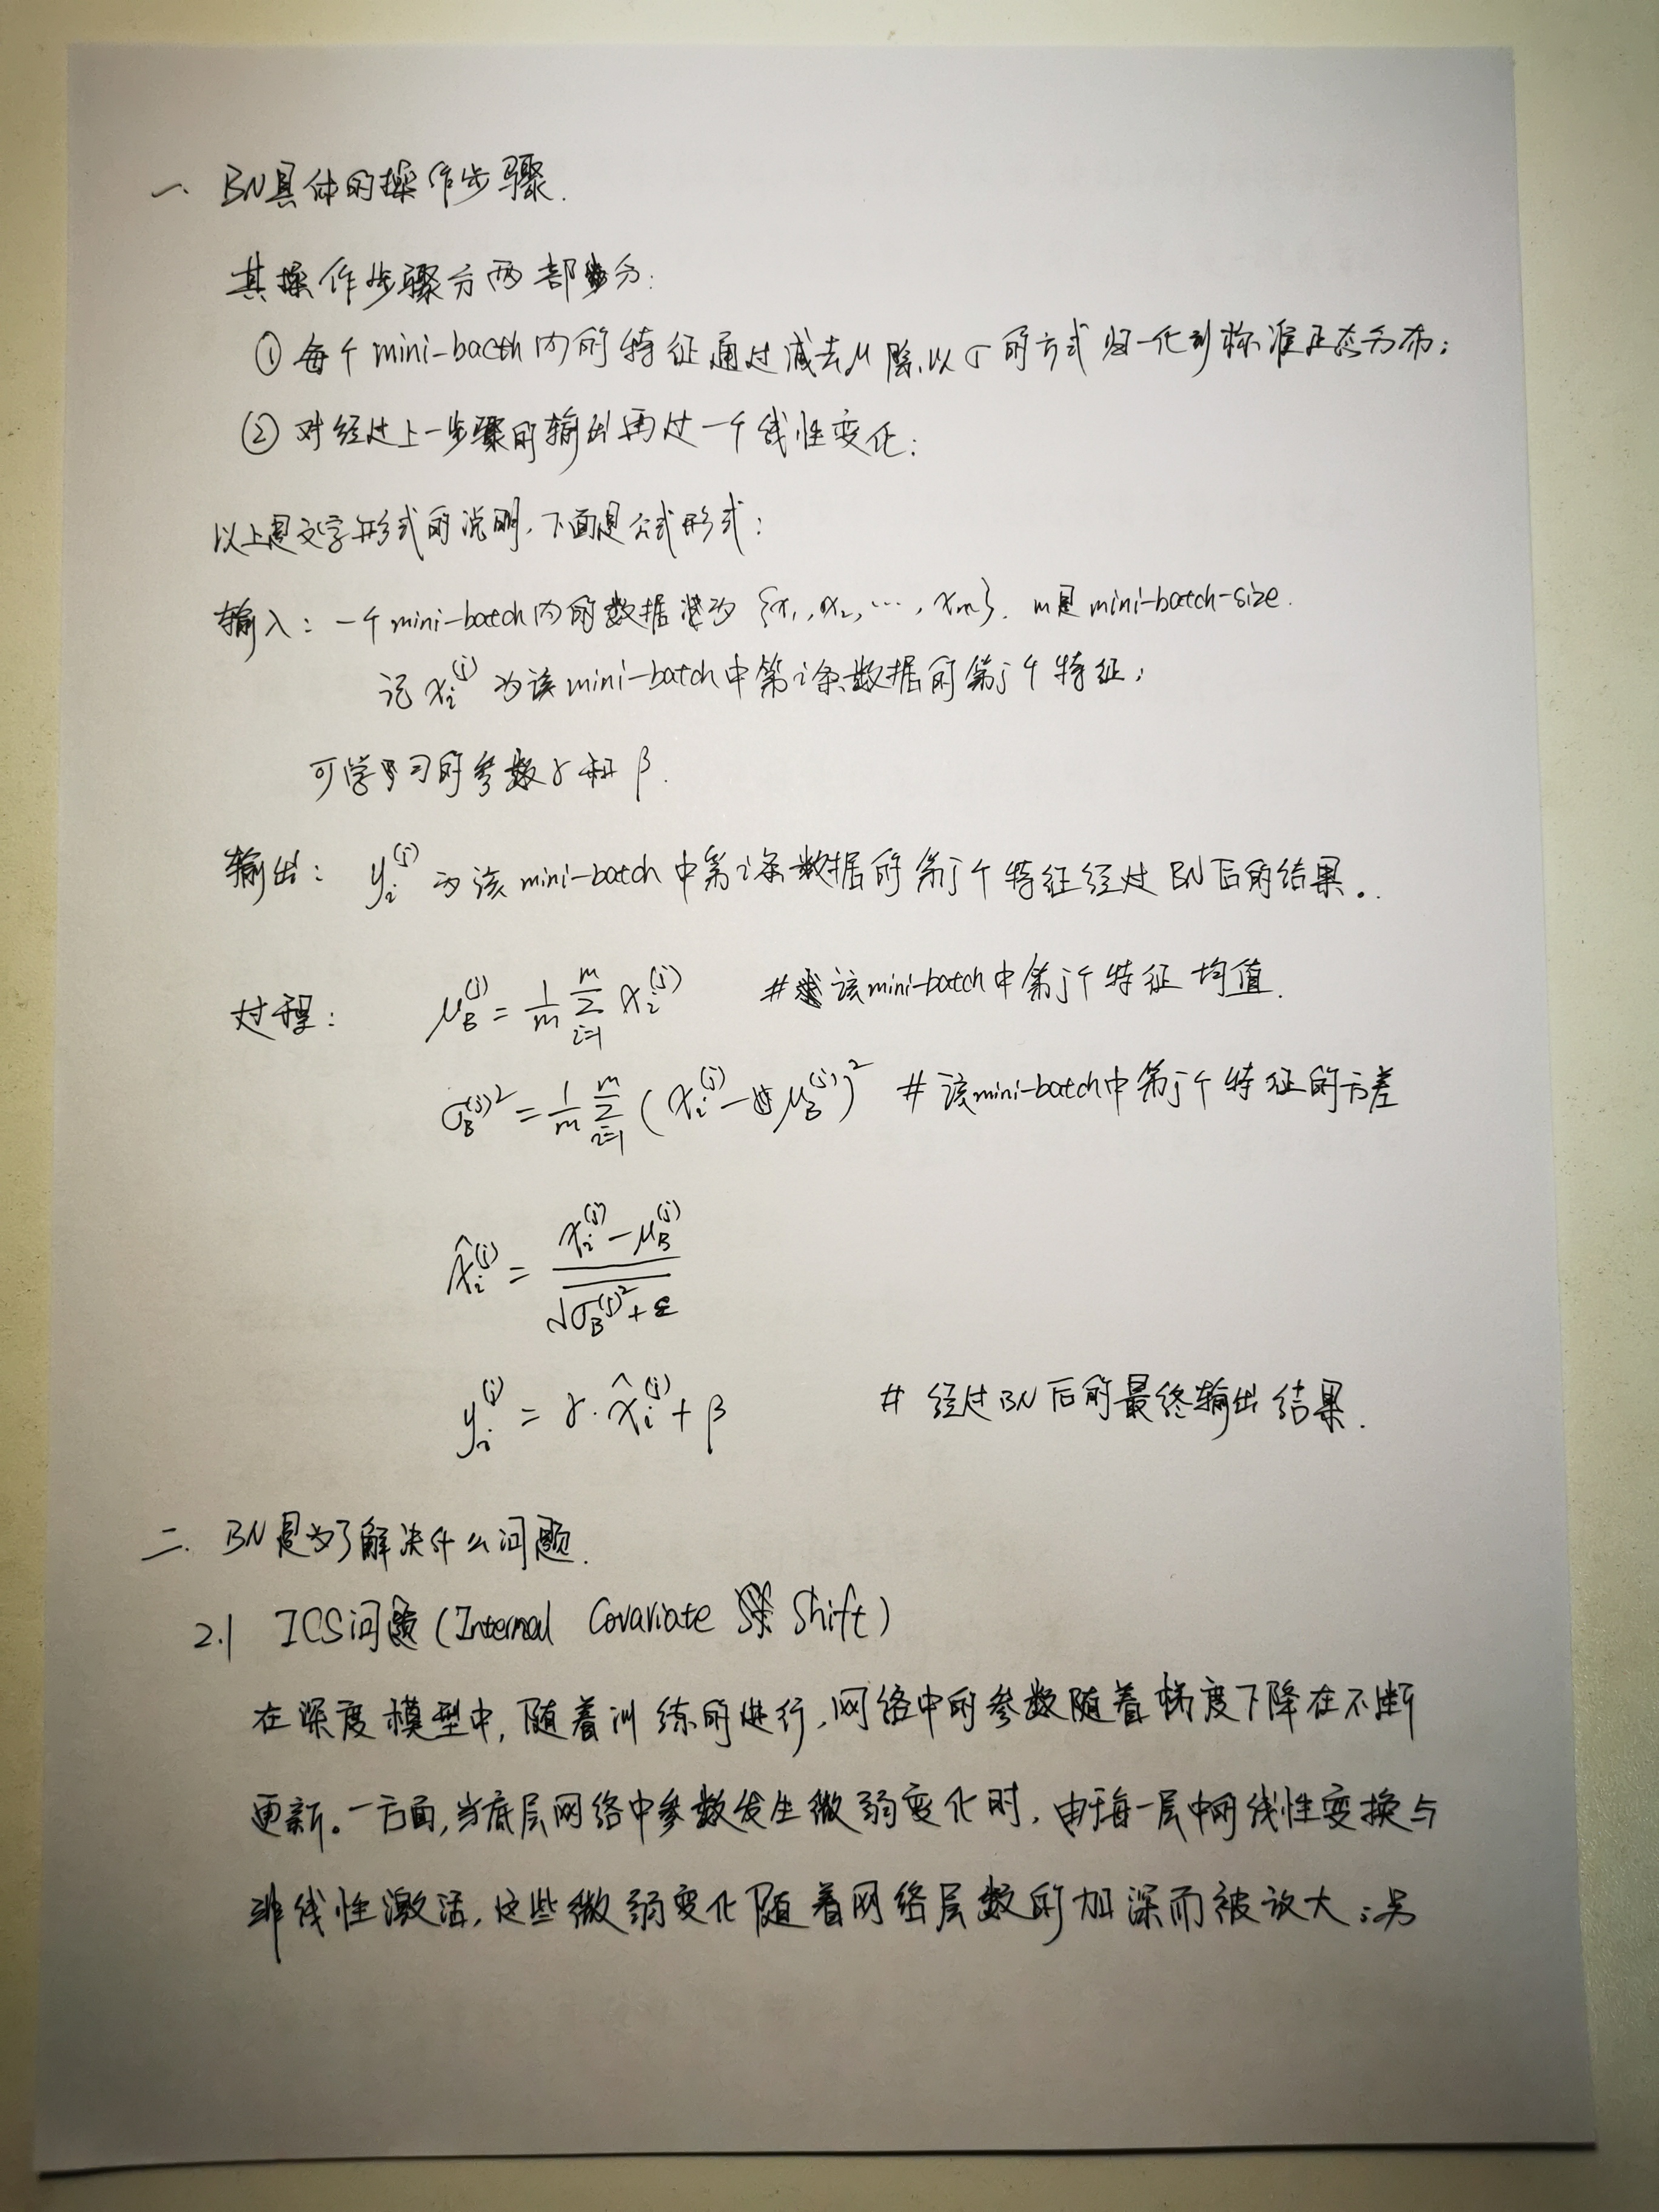 一、BN具体的操作步骤.
其操作步骤分两部分:
① 每个mini-bacth内的特征通过减去μ除以σ的方式归一化到标准正态分布;
② 对经过上一步骤的输出再过一个线性变化;
以上是文字形式的说明,下面是公式形式:
输入: 一个mini-batch内的数据 为 {x₁, x₂, ⋯, xₘ}. m是mini-batch-size.
记 xᵢ⁽ʲ⁾ 为该mini-batch中第i条数据的第j个特征;
可学习的参数γ和β.
输出: yᵢ⁽ʲ⁾ 为该mini-batch中第i条数据的第j个特征经过BN后的结果.
过程: μ_B⁽ʲ⁾ = 1/m ∑_{i=1}^{m} xᵢ⁽ʲ⁾ # 该mini-batch中第j个特征均值.
σ_B⁽ʲ⁾² = 1/m ∑_{i=1}^{m} (xᵢ⁽ʲ⁾ - μ_B⁽ʲ⁾)² # 该mini-batch中第j个特征的方差
x̂ᵢ⁽ʲ⁾ = (xᵢ⁽ʲ⁾ - μ_B⁽ʲ⁾) / √(σ_B⁽ʲ⁾² + ε)
yᵢ⁽ʲ⁾ = γ · x̂ᵢ⁽ʲ⁾ + β # 经过BN后的最终输出结果.
二. BN是为了解决什么问题.
2.1 ICS问题(Internal Covariate Shift)
在深度模型中,随着训练的进行,网络中的参数随着梯度下降在不断
更新。一方面,当底层网络中参数发生微弱变化时,由于每一层中的线性变换与
非线性激活,这些微弱变化随着网络层数的加深而被放大;另